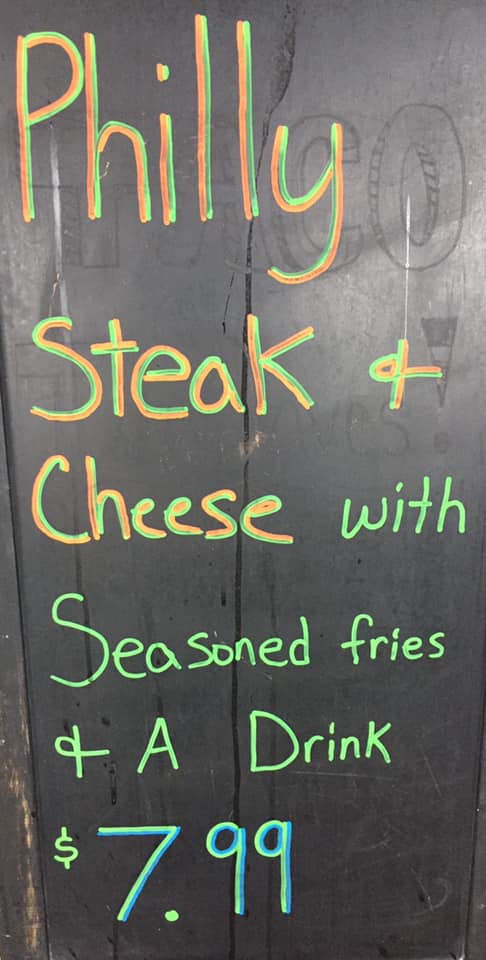 Philly
Steak &
Cheese with
Seasoned fries
& A Drink
$7.99